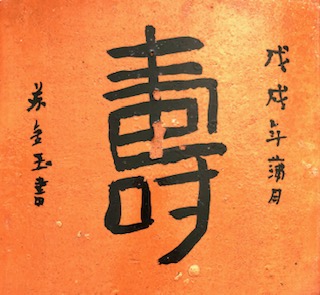 戊戌年蒲月
壽
苏金玉書